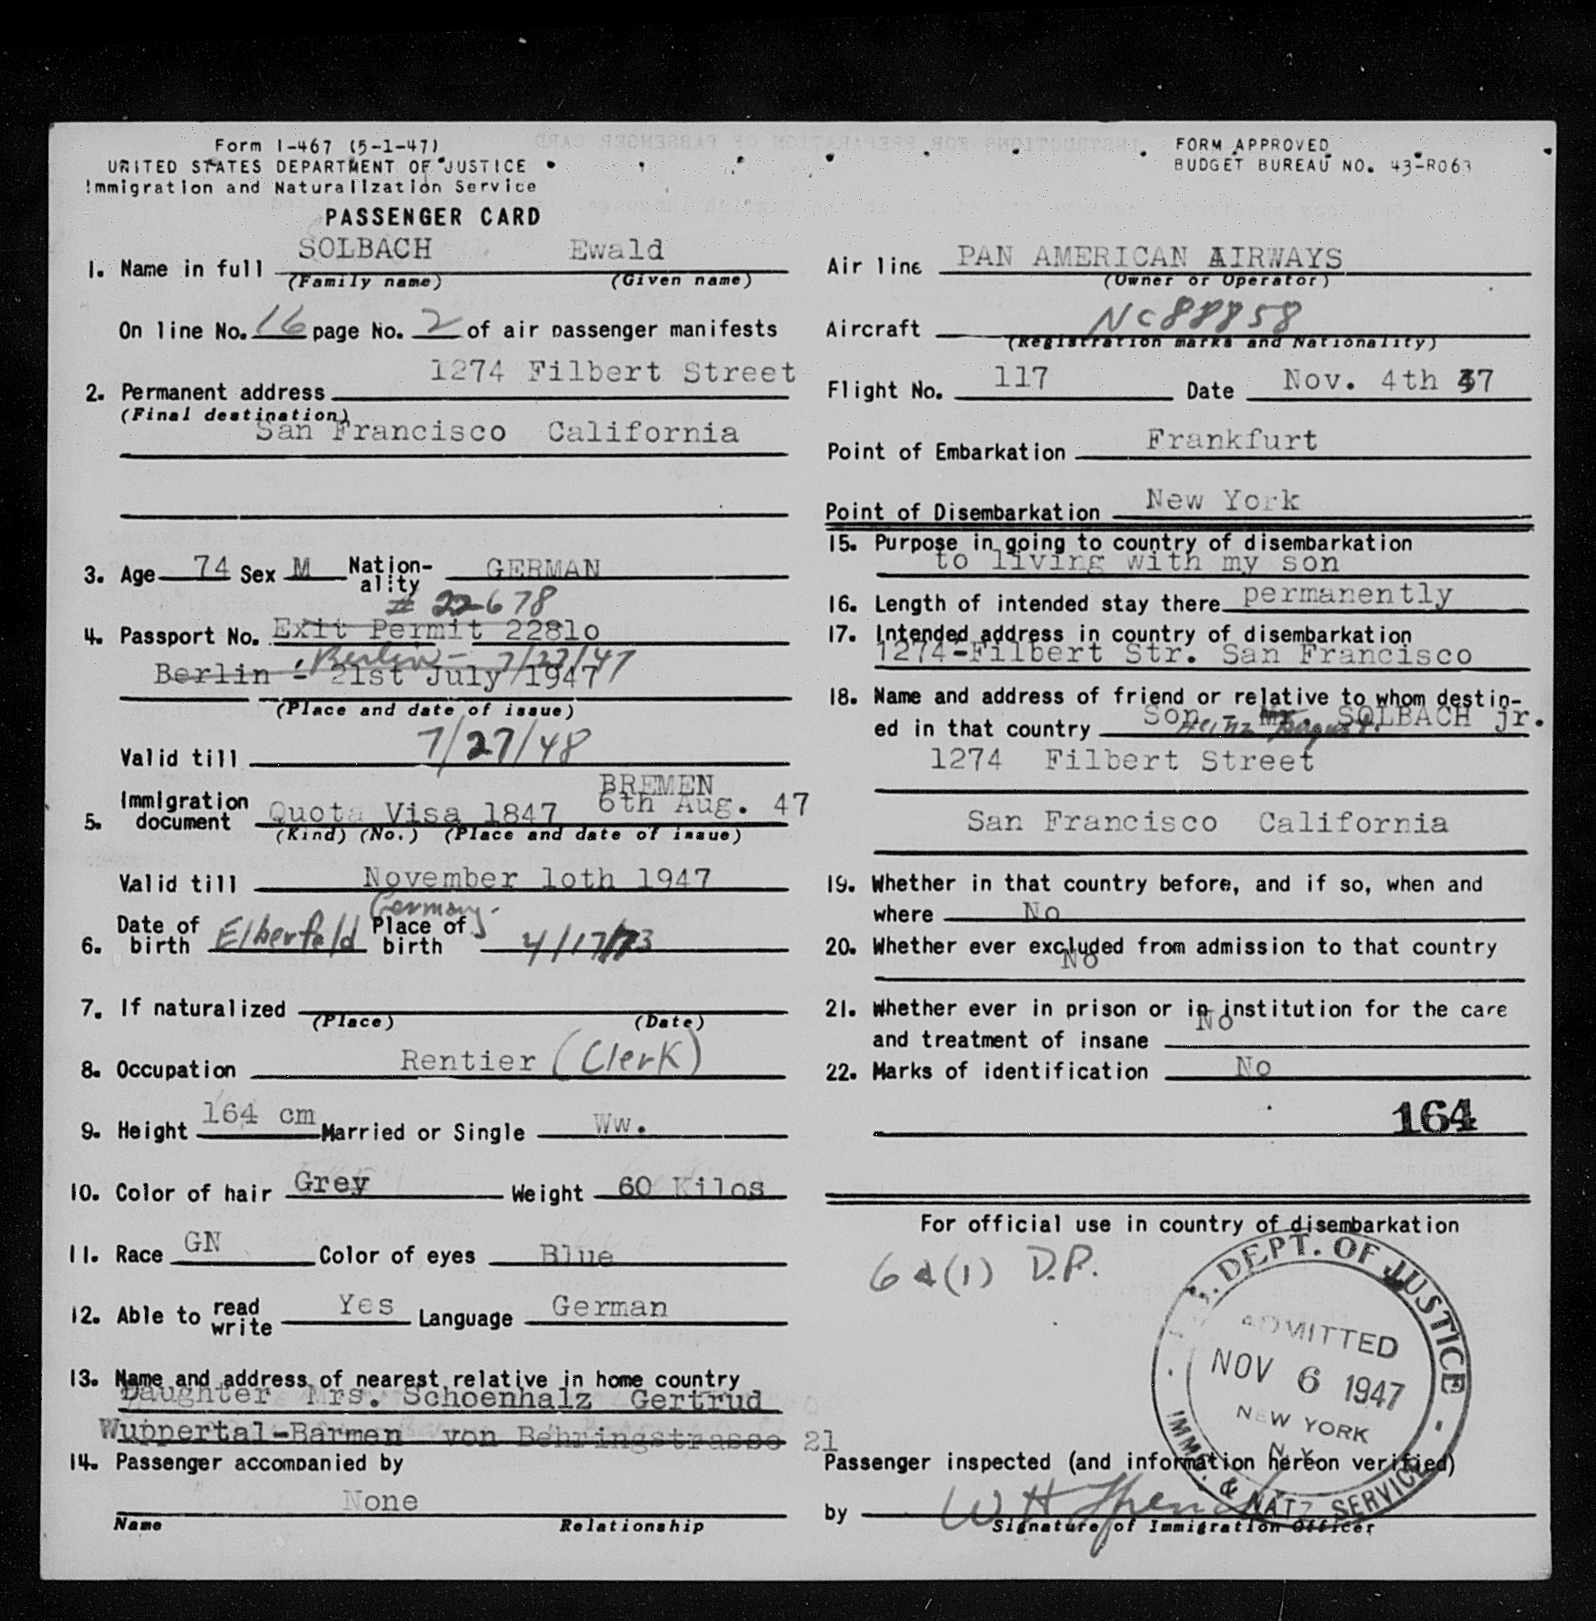 Form I-467 (5-1-47)
UNITED STATES DEPARTMENT OF JUSTICE
Immigration and Naturalization Service
PASSENGER CARD
FORM APPROVED
BUDGET BUREAU NO. 43-R063
1. Name in full SOLBACH Ewald
(Family name) (Given name)
On line No. 16 page No. 2 of air passenger manifests
2. Permanent address 1274 Filbert Street
(Final destination)
San Francisco California
3. Age 74 Sex M Nation-ality GERMAN
# 22678
4. Passport No. Exit Permit 22810
Berlin - 7/27/47
Berlin - 21st July 1947
(Place and date of issue)
Valid till 7/27/48
5. Immigration document Quota Visa 1847 BREMEN 6th Aug. 47
(Kind) (No.) (Place and date of issue)
Valid till November 10th 1947
Germany.
6. Date of birth Elberfeld Place of birth 4/17/73
7. If naturalized
(Place) (Date)
8. Occupation Rentier (Clerk)
9. Height 164 cm Married or Single Ww.
10. Color of hair Grey Weight 60 Kilos
11. Race GN Color of eyes Blue
12. Able to read write Yes Language German
13. Name and address of nearest relative in home country
Daughter Mrs. Schoenhalz Gertrud
Wuppertal-Barmen von Behringstrasse 21
14. Passenger accompanied by
None
Name Relationship
Air line PAN AMERICAN AIRWAYS
(Owner or Operator)
Aircraft NC88858
(Registration marks and Nationality)
Flight No. 117 Date Nov. 4th 47
Point of Embarkation Frankfurt
Point of Disembarkation New York
15. Purpose in going to country of disembarkation
to living with my son
16. Length of intended stay there permanently
17. Intended address in country of disembarkation
1274-Filbert Str. San Francisco
18. Name and address of friend or relative to whom destin-
ed in that country Son Mr. SOLBACH jr.
Heinz August.
1274 Filbert Street
San Francisco California
19. Whether in that country before, and if so, when and
where No
20. Whether ever excluded from admission to that country
No
21. Whether ever in prison or in institution for the care
and treatment of insane No
22. Marks of identification No
164
For official use in country of disembarkation
6 d (1) D.P.
U.S. DEPT. OF JUSTICE
ADMITTED
NOV 6 1947
NEW YORK
N.Y.
IMM. & NATZ. SERVICE
Passenger inspected (and information hereon verified)
by W H
Signature of Immigration Officer